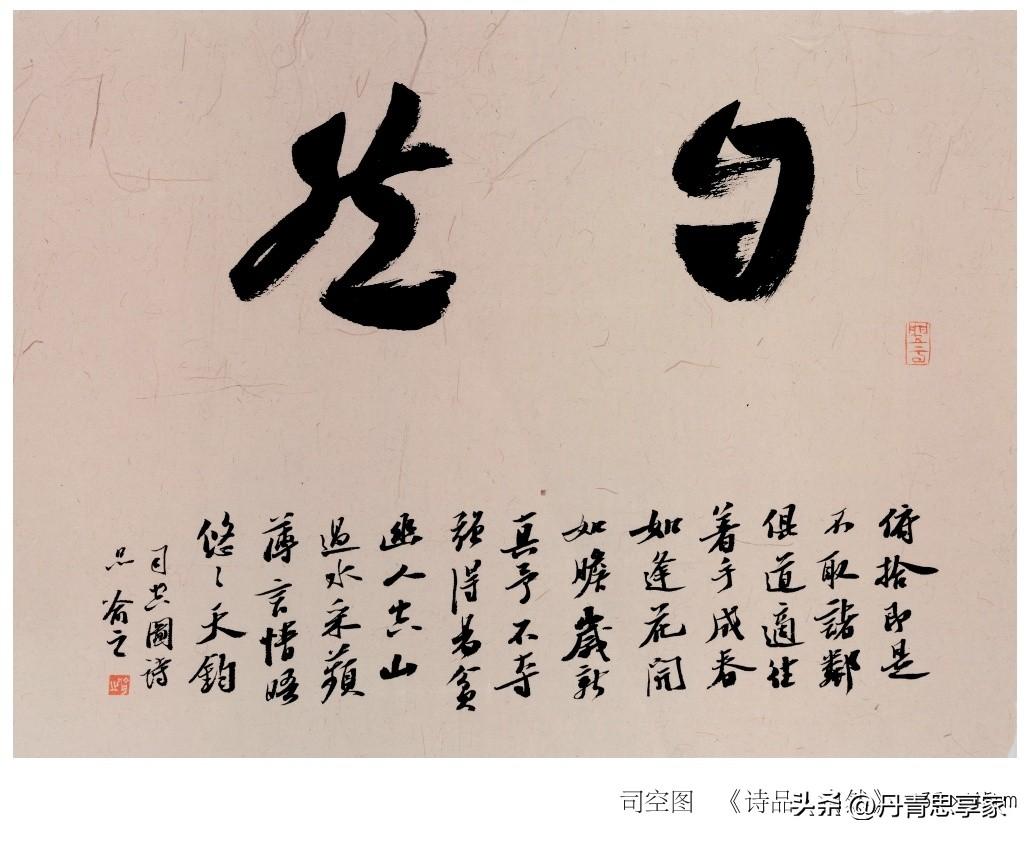 自然
俯拾即是
不取諸鄰
俱道適往
着手成春
如逢花開
如瞻歲新
真予不奪
强得易貧
幽人空山
過水采蘋
薄言情晤
悠々天鈞
司空圖詩
品 俞之
司空图 《诗品 自然》 cm
头条 @丹青思享家